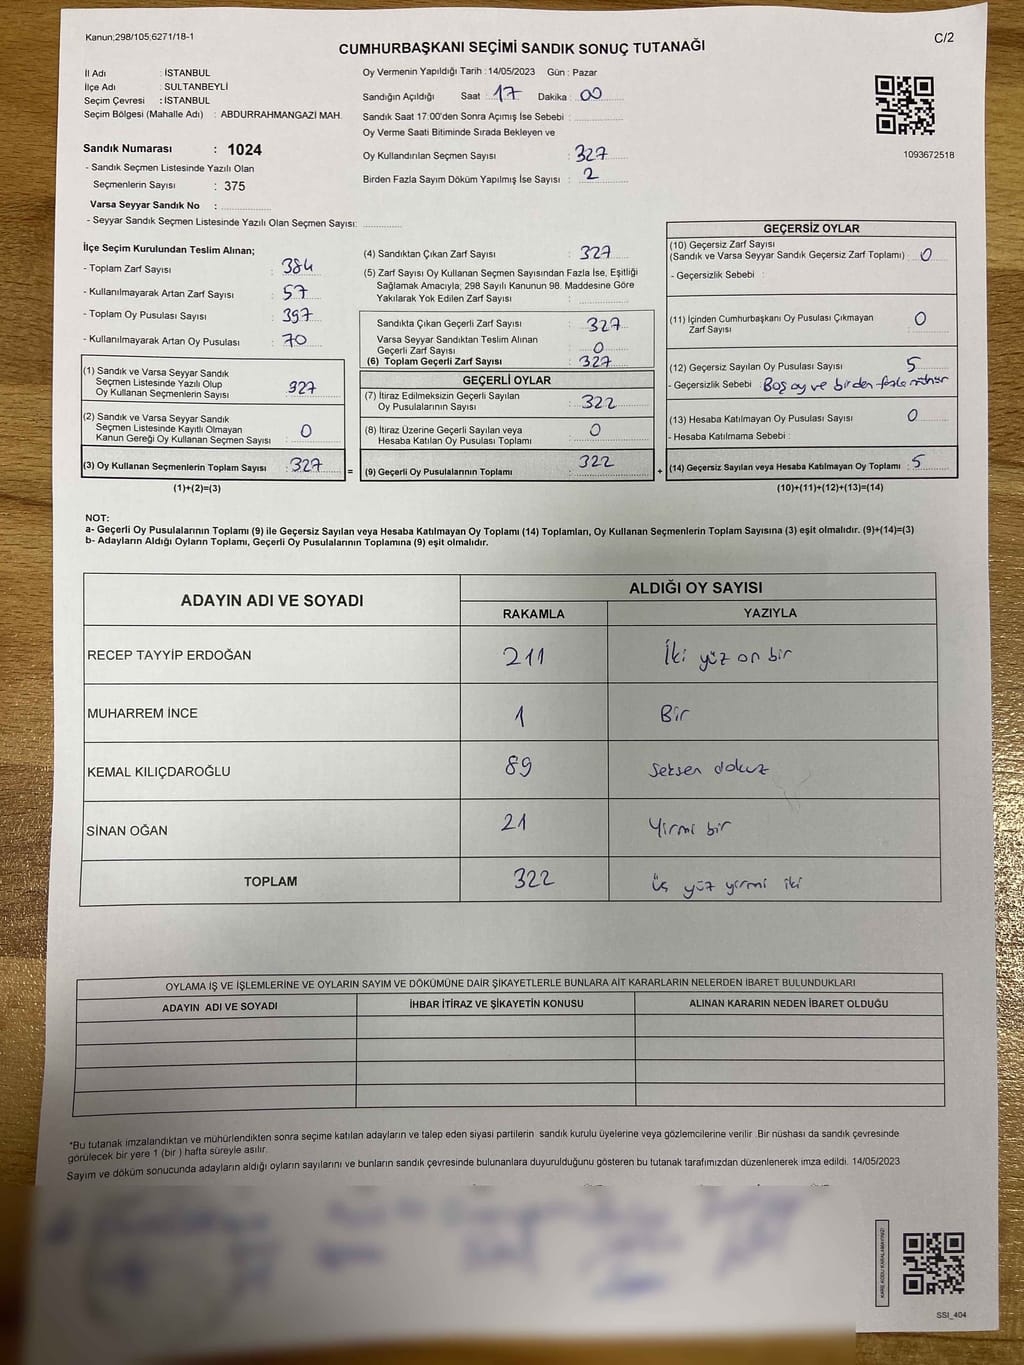 Kanun;298/105;6271/18-1
C/2
CUMHURBAŞKANI SEÇİMİ SANDIK SONUÇ TUTANAĞI
İl Adı : İSTANBUL
İlçe Adı : SULTANBEYLİ
Seçim Çevresi : İSTANBUL
Seçim Bölgesi (Mahalle Adı) : ABDURRAHMANGAZİ MAH.
Sandık Numarası : 1024
- Sandık Seçmen Listesinde Yazılı Olan
Seçmenlerin Sayısı : 375
Varsa Seyyar Sandık No :
- Seyyar Sandık Seçmen Listesinde Yazılı Olan Seçmen Sayısı:
Oy Vermenin Yapıldığı Tarih : 14/05/2023 Gün : Pazar
Sandığın Açıldığı Saat : 17 Dakika : 00
Sandık Saat 17.00'den Sonra Açımış İse Sebebi :
Oy Verme Saati Bitiminde Sırada Bekleyen ve
Oy Kullandırılan Seçmen Sayısı : 327
Birden Fazla Sayım Döküm Yapılmış İse Sayısı : 2
1093672518
İlçe Seçim Kurulundan Teslim Alınan;
- Toplam Zarf Sayısı : 384
- Kullanılmayarak Artan Zarf Sayısı : 57
- Toplam Oy Pusulası Sayısı : 397
- Kullanılmayarak Artan Oy Pusulası : 70
(1) Sandık ve Varsa Seyyar Sandık
Seçmen Listesinde Yazılı Olup
Oy Kullanan Seçmenlerin Sayısı : 327
(2) Sandık ve Varsa Seyyar Sandık
Seçmen Listesinde Kayıtlı Olmayan
Kanun Gereği Oy Kullanan Seçmen Sayısı : 0
(3) Oy Kullanan Seçmenlerin Toplam Sayısı : 327
(1)+(2)=(3)
=
(4) Sandıktan Çıkan Zarf Sayısı : 327
(5) Zarf Sayısı Oy Kullanan Seçmen Sayısından Fazla İse, Eşitliği
Sağlamak Amacıyla; 298 Sayılı Kanunun 98. Maddesine Göre
Yakılarak Yok Edilen Zarf Sayısı :
Sandıkta Çıkan Geçerli Zarf Sayısı : 327
Varsa Seyyar Sandıktan Teslim Alınan
Geçerli Zarf Sayısı : 0
(6) Toplam Geçerli Zarf Sayısı : 327
GEÇERLİ OYLAR
(7) İtiraz Edilmeksizin Geçerli Sayılan
Oy Pusulalarının Sayısı : 322
(8) İtiraz Üzerine Geçerli Sayılan veya
Hesaba Katılan Oy Pusulası Toplamı : 0
(9) Geçerli Oy Pusulalarının Toplamı : 322
+
GEÇERSİZ OYLAR
(10) Geçersiz Zarf Sayısı
(Sandık ve Varsa Seyyar Sandık Geçersiz Zarf Toplamı) : 0
- Geçersizlik Sebebi :
(11) İçinden Cumhurbaşkanı Oy Pusulası Çıkmayan
Zarf Sayısı : 0
(12) Geçersiz Sayılan Oy Pusulası Sayısı : 5
- Geçersizlik Sebebi : Boş oy ve birden fazla mühür
(13) Hesaba Katılmayan Oy Pusulası Sayısı : 0
- Hesaba Katılmama Sebebi :
(14) Geçersiz Sayılan veya Hesaba Katılmayan Oy Toplamı : 5
(10)+(11)+(12)+(13)=(14)
NOT:
a- Geçerli Oy Pusulalarının Toplamı (9) ile Geçersiz Sayılan veya Hesaba Katılmayan Oy Toplamı (14) Toplamları, Oy Kullanan Seçmenlerin Toplam Sayısına (3) eşit olmalıdır. (9)+(14)=(3)
b- Adayların Aldığı Oyların Toplamı, Geçerli Oy Pusulalarının Toplamına (9) eşit olmalıdır.
ADAYIN ADI VE SOYADI
ALDIĞI OY SAYISI
RAKAMLA YAZIYLA
RECEP TAYYİP ERDOĞAN 211 İki yüz on bir
MUHARREM İNCE 1 Bir
KEMAL KILIÇDAROĞLU 89 Seksen dokuz
SİNAN OĞAN 21 Yirmi bir
TOPLAM 322 Üç yüz yirmi iki
OYLAMA İŞ VE İŞLEMLERİNE VE OYLARIN SAYIM VE DÖKÜMÜNE DAİR ŞİKAYETLERLE BUNLARA AİT KARARLARIN NELERDEN İBARET BULUNDUKLARI
ADAYIN ADI VE SOYADI İHBAR İTİRAZ VE ŞİKAYETİN KONUSU ALINAN KARARIN NEDEN İBARET OLDUĞU
*Bu tutanak imzalandıktan ve mühürlendikten sonra seçime katılan adayların ve talep eden siyasi partilerin sandık kurulu üyelerine veya gözlemcilerine verilir .Bir nüshası da sandık çevresinde
görülecek bir yere 1 (bir ) hafta süreyle asılır.
Sayım ve döküm sonucunda adayların aldığı oyların sayılarını ve bunların sandık çevresinde bulunanlara duyurulduğunu gösteren bu tutanak tarafımızdan düzenlenerek imza edildi. 14/05/2023
KARE KODU KARALAMAYINIZ!
SSI_404